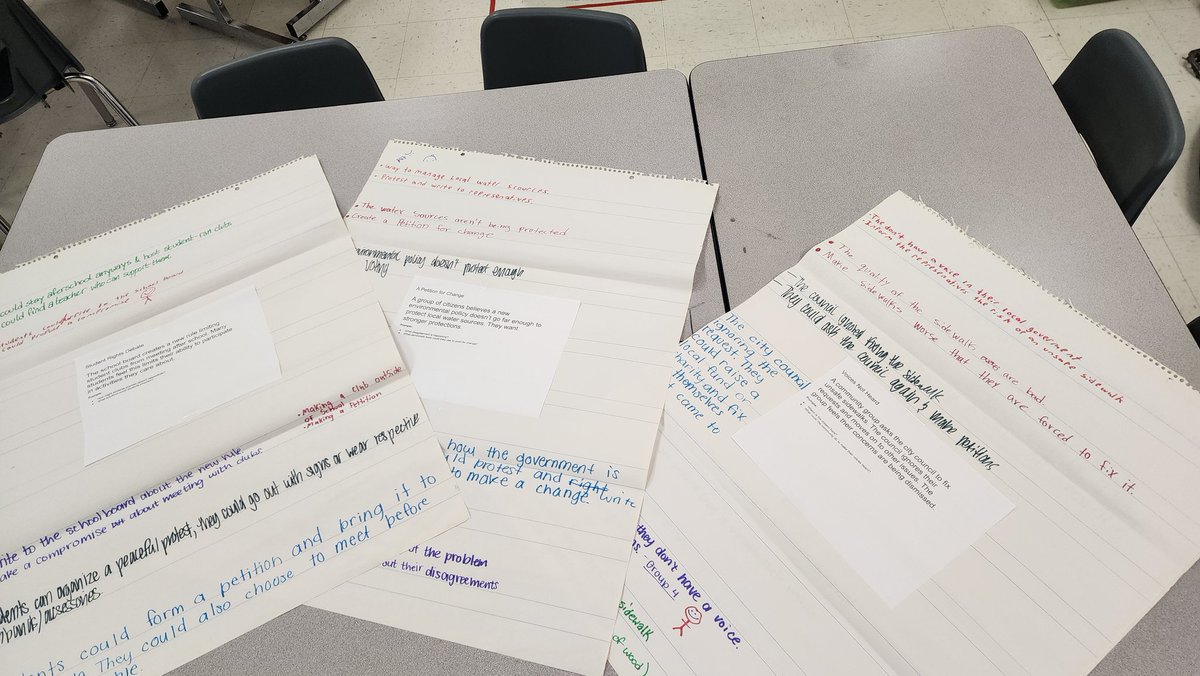 could stay afterschool anyways & host student-ran clubs
could find a teacher who can support them.
to the school board
Student Rights Debate
The school board creates a new rule limiting
student clubs from meeting after school. Many
students feel this limits their ability to participate
in activities they care about.
- Making a Club outside
of School
- Making a Petition
rite to the schoolboard about the new rule
ake a compromise about meeting with clubs.
dents can organize a peaceful protest, they could go out with signs or wear respective
accessories
ents could form a petition and bring it to
They could also choose to meet before
• Way to manage local water scources.
• Protest and write to represenatives.
• The water sources aren't being protected
• Create a Petition for change
environmental policy doesn't protect enough
Voting
A Petition for Change
A group of citizens believes a new
environmental policy doesn't go far enough to
protect local water sources. They want
stronger protections.
how the government is
ld protest and right write
to make a change
t the problem
out their disagreements
• The don't have a voice in their local government
• Inform the representatives the risk of an unsafe sidewalk
• The quality of the sidewalks are bad.
• Make sidewalks worse that they are forced to fix it.
- The council ignored fixing the sidewalk
- They could ask the council again & make petitions
The city council
ignoring the
request. They
could raise a
local fund or
charity and fix
themselves
came to
Voices Not Heard
A community group asks the city council to fix
unsafe sidewalks. The council ignores their
requests and moves on to other issues. The
group feels their concerns are being dismissed.
they don't have a voice.
- Group 4
sidewalk
of wood)